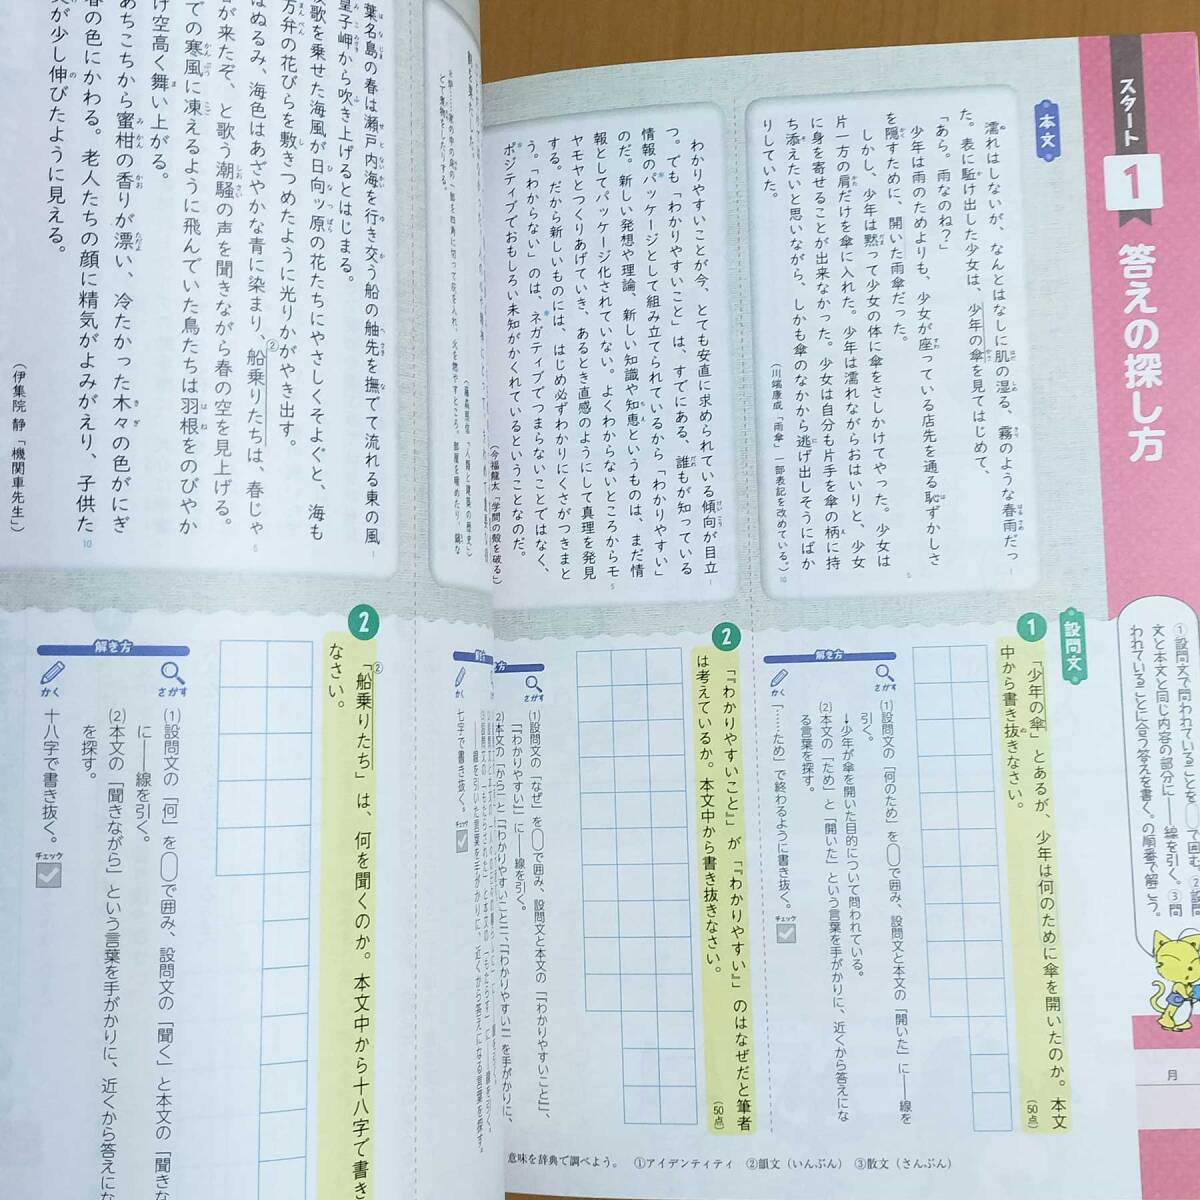 スタート
1
答えの探し方
本文
濡れはしないが、なんとはなしに肌の湿る、霧のような春雨だっ
た。表に駈け出した少女は、少年の傘を見てはじめて、
「あら。雨なのね?」
少年は雨のためよりも、少女が座っている店先を通る恥ずかしさ
を隠すために、開いた雨傘だった。
しかし、少年は黙って少女の体に傘をさしかけてやった。少女は
片一方の肩だけを傘に入れた。少年は濡れながらおはいりと、少女
に身を寄せることが出来なかった。少女は自分も片手を傘の柄に持
ち添えたいと思いながら、しかも傘のなかから逃げ出しそうにばか
りしていた。
(川端康成「雨傘」一部表記を改めている。)
わかりやすいことが今、とても安直に求められている傾向が目立
つ。でも「わかりやすいこと」は、すでにある、誰もが知っている
情報のパッケージとして組み立てられているから「わかりやすい」
のだ。新しい発想や理論、新しい知識や知恵というものは、まだ情
報としてパッケージ化されていない。よくわからないところからモ
ヤモヤとつくりあげていき、あるとき直感のようにして真理を発見
する。だから新しいものには、はじめ必ずわかりにくさがつきまと
う。「わからない」のは、ネガティブでつまらないことではなく、
ポジティブでおもしろい未知がかくれているということなのだ。
(今福龍太「学問の殻を破る」)
①設問文で問われていることを◯で囲む。②設問
文と本文と同じ内容の部分に――線を引く。③問
われていることに合う答えを書く。の順番で解こう。
設問文
1
「少年の傘」とあるが、少年は何のために傘を開いたのか。本文
中から書き抜きなさい。
(50点)
解き方
さがす
(1)設問文の「何のため」を◯で囲み、設問文と本文の「開いた」に――線を
引く。
→少年が傘を開いた目的について問われている。
(2)本文の「ため」と「開いた」という言葉を手がかりに、近くから答えにな
る言葉を探す。
かく
「……ため」で終わるように書き抜く。
チェック
2
「『わかりやすいこと』」が「『わかりやすい』のはなぜだと筆者
は考えているか。本文中から書き抜きなさい。
(50点)
さがす
(1)設問文の「なぜ」を◯で囲み、設問文と本文の「『わかりやすいこと』」、
「『わかりやすい』」に――線を引く。
(2)本文の「から」と「『わかりやすいこと』」、「『わかりやすい』」を手がかりに、
かく
七字で書き抜く。
チェック
意味を辞典で調べよう。 ①アイデンティティ ②韻文(いんぶん) ③散文(さんぶん)
月
葉名島の春は瀬戸内海を行き交う船の舳先を撫でて流れる東の風
皇子岬から吹き上げるとはじまる。
歌を乗せた海風が日向ッ原の花たちにやさしくそよぐと、海も
万弁の花びらを敷きつめたように光りかがやき出す。
はぬるみ、海色はあざやかな青に染まり、②船乗りたちは、春じゃ
が来たぞ、と歌う潮騒の声を聞きながら春の空を見上げる。
ての寒風に凍えるように飛んでいた鳥たちは羽根をのびやか
け空高く舞い上がる。
あちこちから蜜柑の香りが漂い、冷たかった木々の色がにぎ
春の色にかわる。老人たちの顔に精気がよみがえり、子供た
が少し伸びたように見える。
(伊集院 静「機関車先生」)
2
②「船乗りたち」は、何を聞くのか。本文中から十八字で書き
なさい。
解き方
さがす
(1)設問文の「何」を◯で囲み、設問文の「聞く」と本文の「聞きな
に――線を引く。
(2)本文の「聞きながら」という言葉を手がかりに、近くから答えにな
を探す。
かく
十八字で書き抜く。
チェック